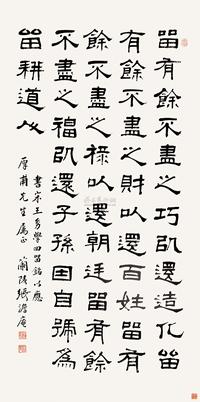 畱有餘不盡之巧㠯還造化畱
有餘不盡之財㠯還百姓畱有
餘不盡之祿㠯還朝廷畱有餘
不盡之福㠯還子孫因自號為
畱耕道人
書宋王學四畱銘以應
厚甫先生屬正 蘭陵張澹庵